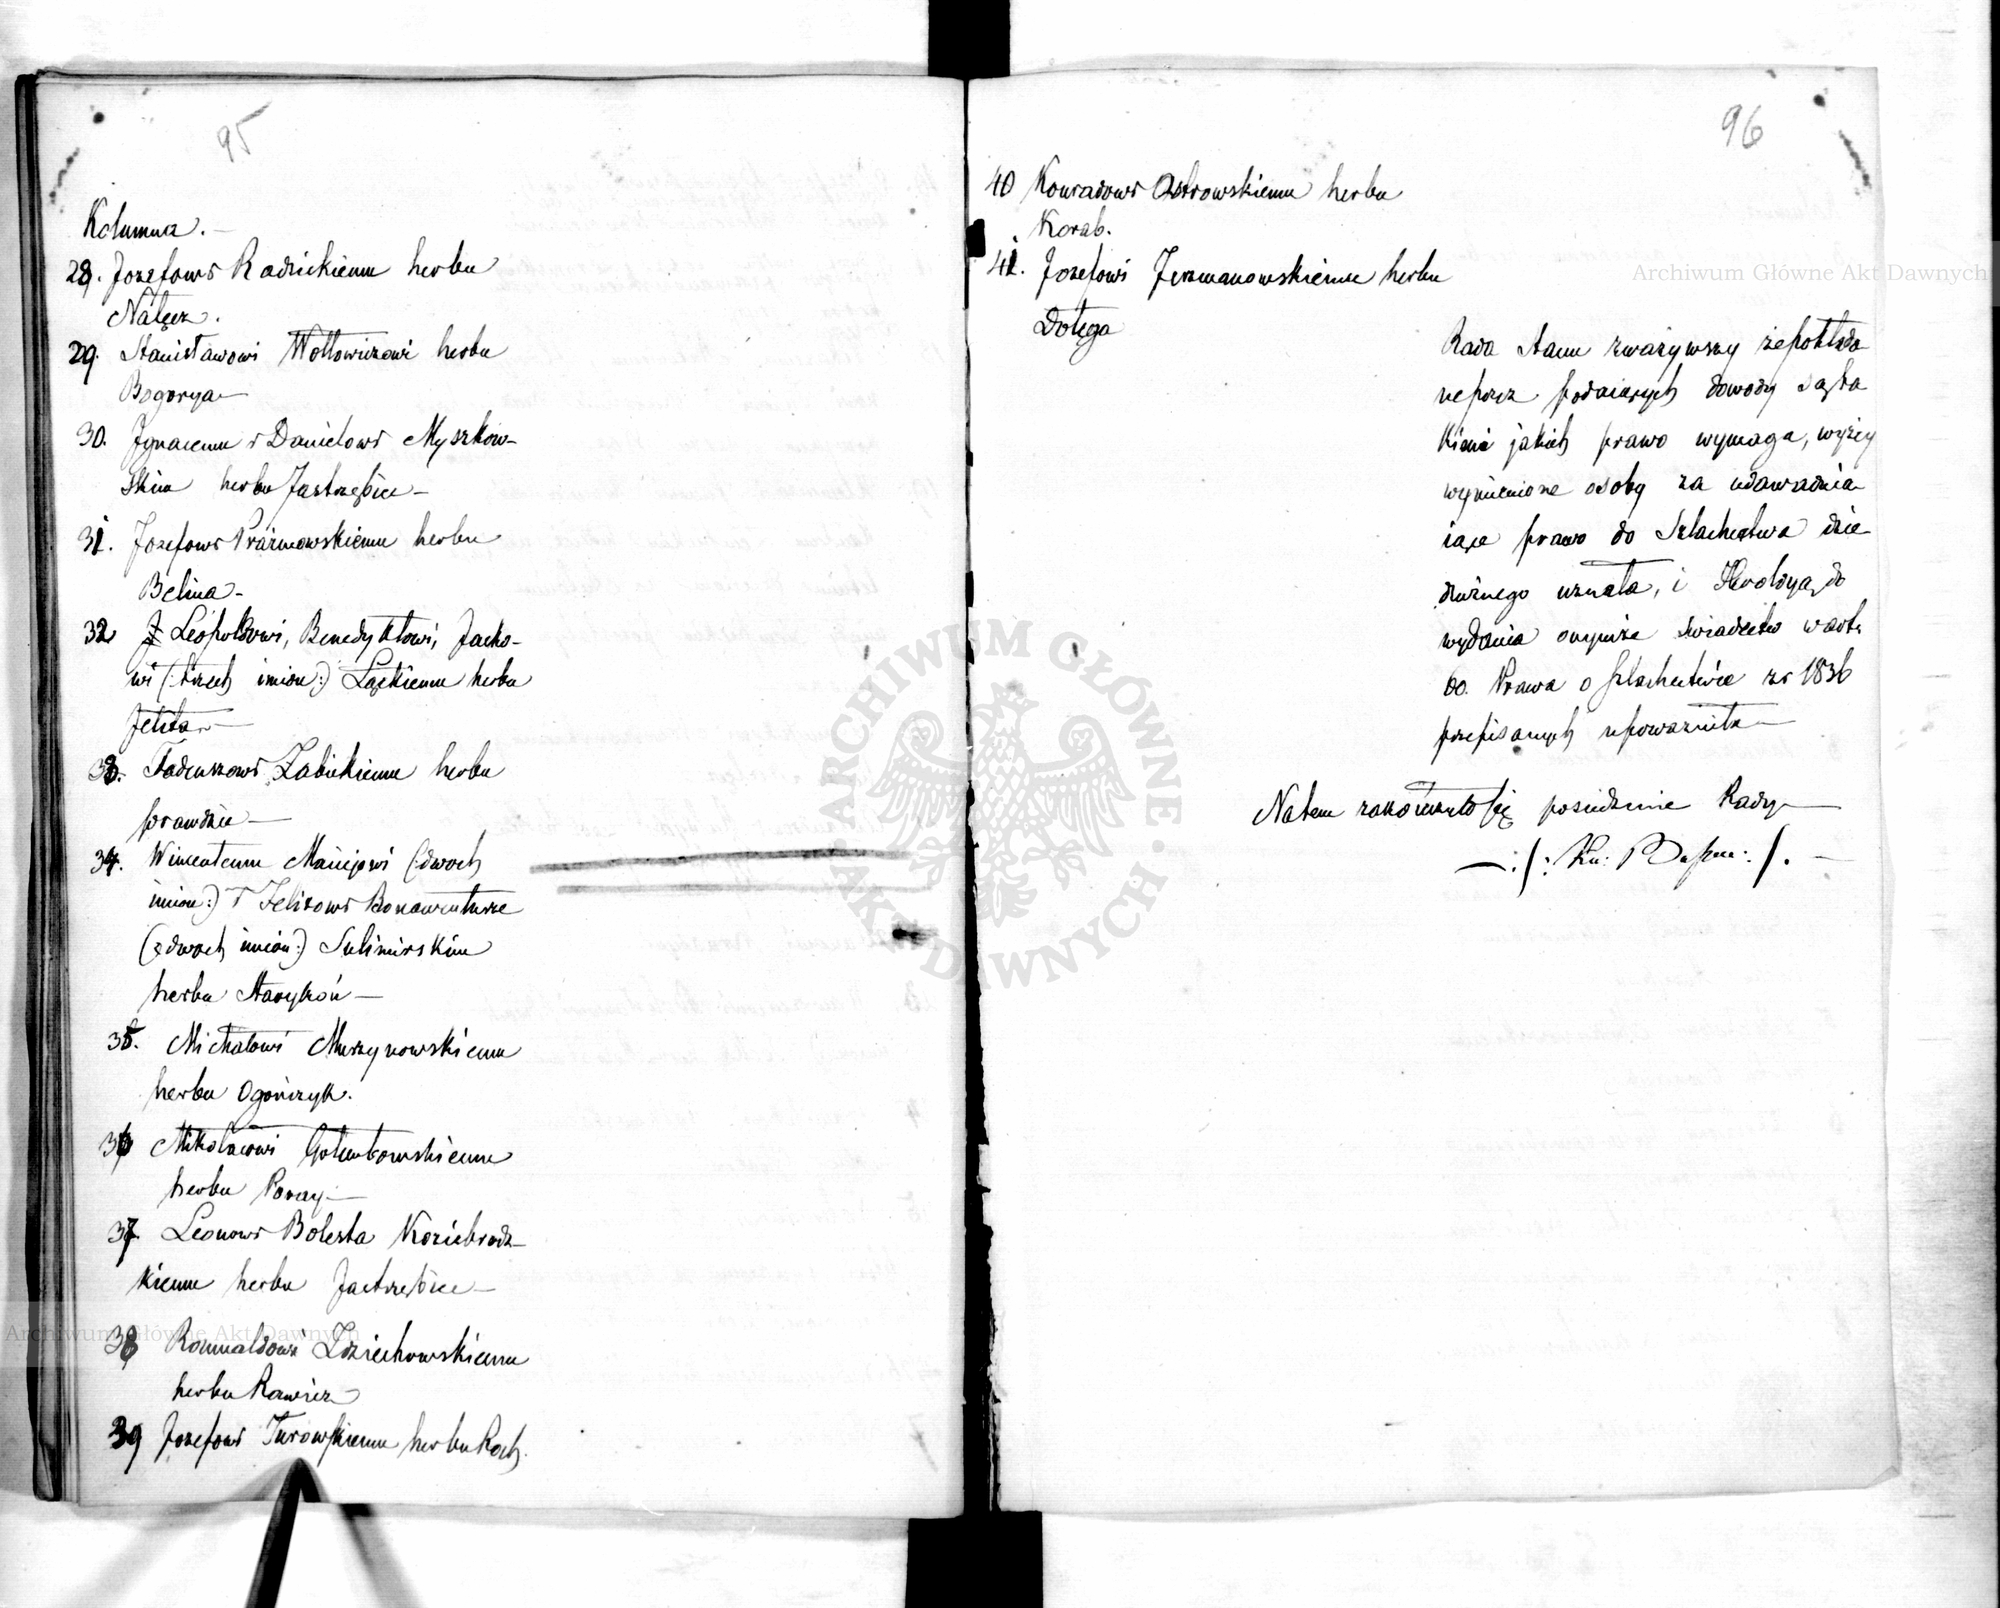 95
Kolumna.
28. Jozefowi Radzickiemu herbu
Nałęcz.
29. Stanisławowi Wołłowiczowi herbu
Bogorya
30. Ignacemu i Danielowi Myszkow-
skim herbu Jastrzębiec
31. Jozefowi Prażmowskiemu herbu
Belina
32 Leopoldowi, Benedyktowi, Jacko-
wi (: trzech imion:) Łąckiemu herbu
Jelita
33. Tadeuszowi Zabickiemu herbu
prawdzic
34. Wincentemu Maciejowi (: dwoch
imion:) i Felixowi Bonawenturze
(: dwoch imion:) Sulimirskim
herbu Starykoń
35. Michałowi Murzynowskiemu
herbu Ogończyk.
36 Mikołaiowi Gołembowskiemu
herbu Poray
37. Leonowi Bolesta Koziebrodz-
kiemu herbu Jastrzębiec
38 Romualdowi Zdziechowskiemu
herbu Rawicz
39 Jozefowi Turowskiemu herbu Roch.
96
40 Konradowi Ostrowskiemu herbu
Korab.
41. Jozefowi Jerzmanowskiemu herbu
Dołęga
Rada Stanu zważywszy że pokłada
ne przez podaiących dowody są ta
kimi jakich prawo wymaga, wyżey
wymienione osoby za udawadnia
iące prawo do Szlachectwa dzie
dzicznego uznała, i Heroldyą do
wydania onymże świadectw w art:
60. Prawa o szlachectwie z r 1836
przepisanych upoważniła
Na tem zakończyło się posiedzenie Rady
ARCHIWUM GŁÓWNE AKT DAWNYCH
Archiwum Główne Akt Dawnych
Archiwum Główne Akt Dawnych